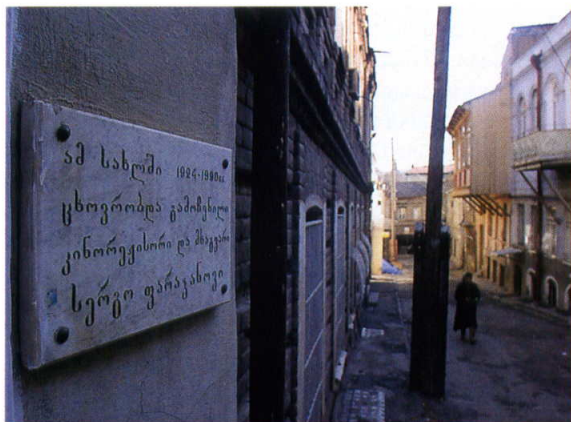 ამ სახლში 1924-1990წწ.
ცხოვრობდა გამოჩენილი
კინორეჟისორი და მხატვარი
სერგო ფარაჯანოვი